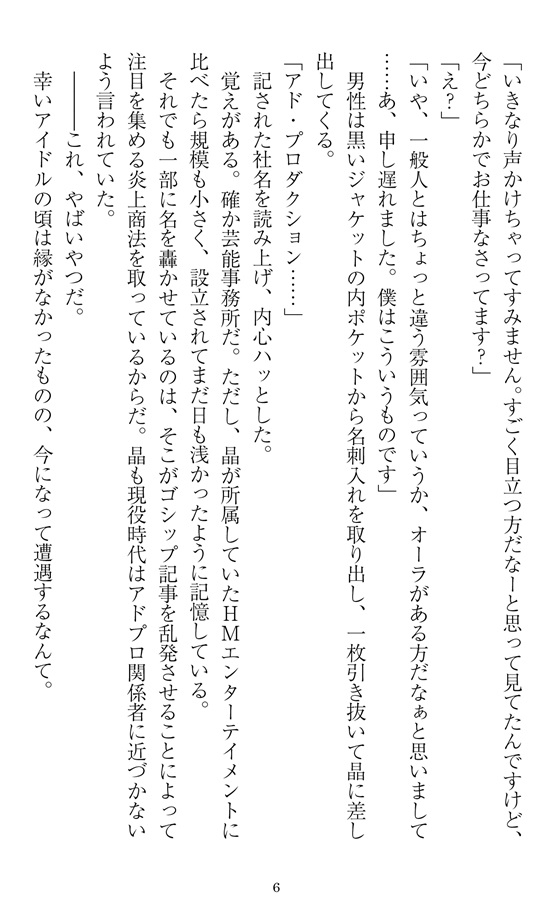 「いきなり声かけちゃってすみません。すごく目立つ方だなーと思って見てたんですけど、
今どちらかでお仕事なさってます?」
「え?」
「いや、一般人とはちょっと違う雰囲気っていうか、オーラがある方だなぁと思いまして
……あ、申し遅れました。僕はこういうものです」
男性は黒いジャケットの内ポケットから名刺入れを取り出し、一枚引き抜いて晶に差し
出してくる。
「アド・プロダクション……」
記された社名を読み上げ、内心ハッとした。
覚えがある。確か芸能事務所だ。ただし、晶が所属していたHMエンターテイメントに
比べたら規模も小さく、設立されてまだ日も浅かったように記憶している。
それでも一部に名を轟かせているのは、そこがゴシップ記事を乱発させることによって
注目を集める炎上商法を取っているからだ。晶も現役時代はアドプロ関係者に近づかない
よう言われていた。
――これ、やばいやつだ。
幸いアイドルの頃は縁がなかったものの、今になって遭遇するなんて。
6